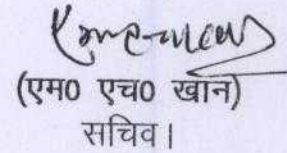 (एम0 एच0 खान)
सचिव।